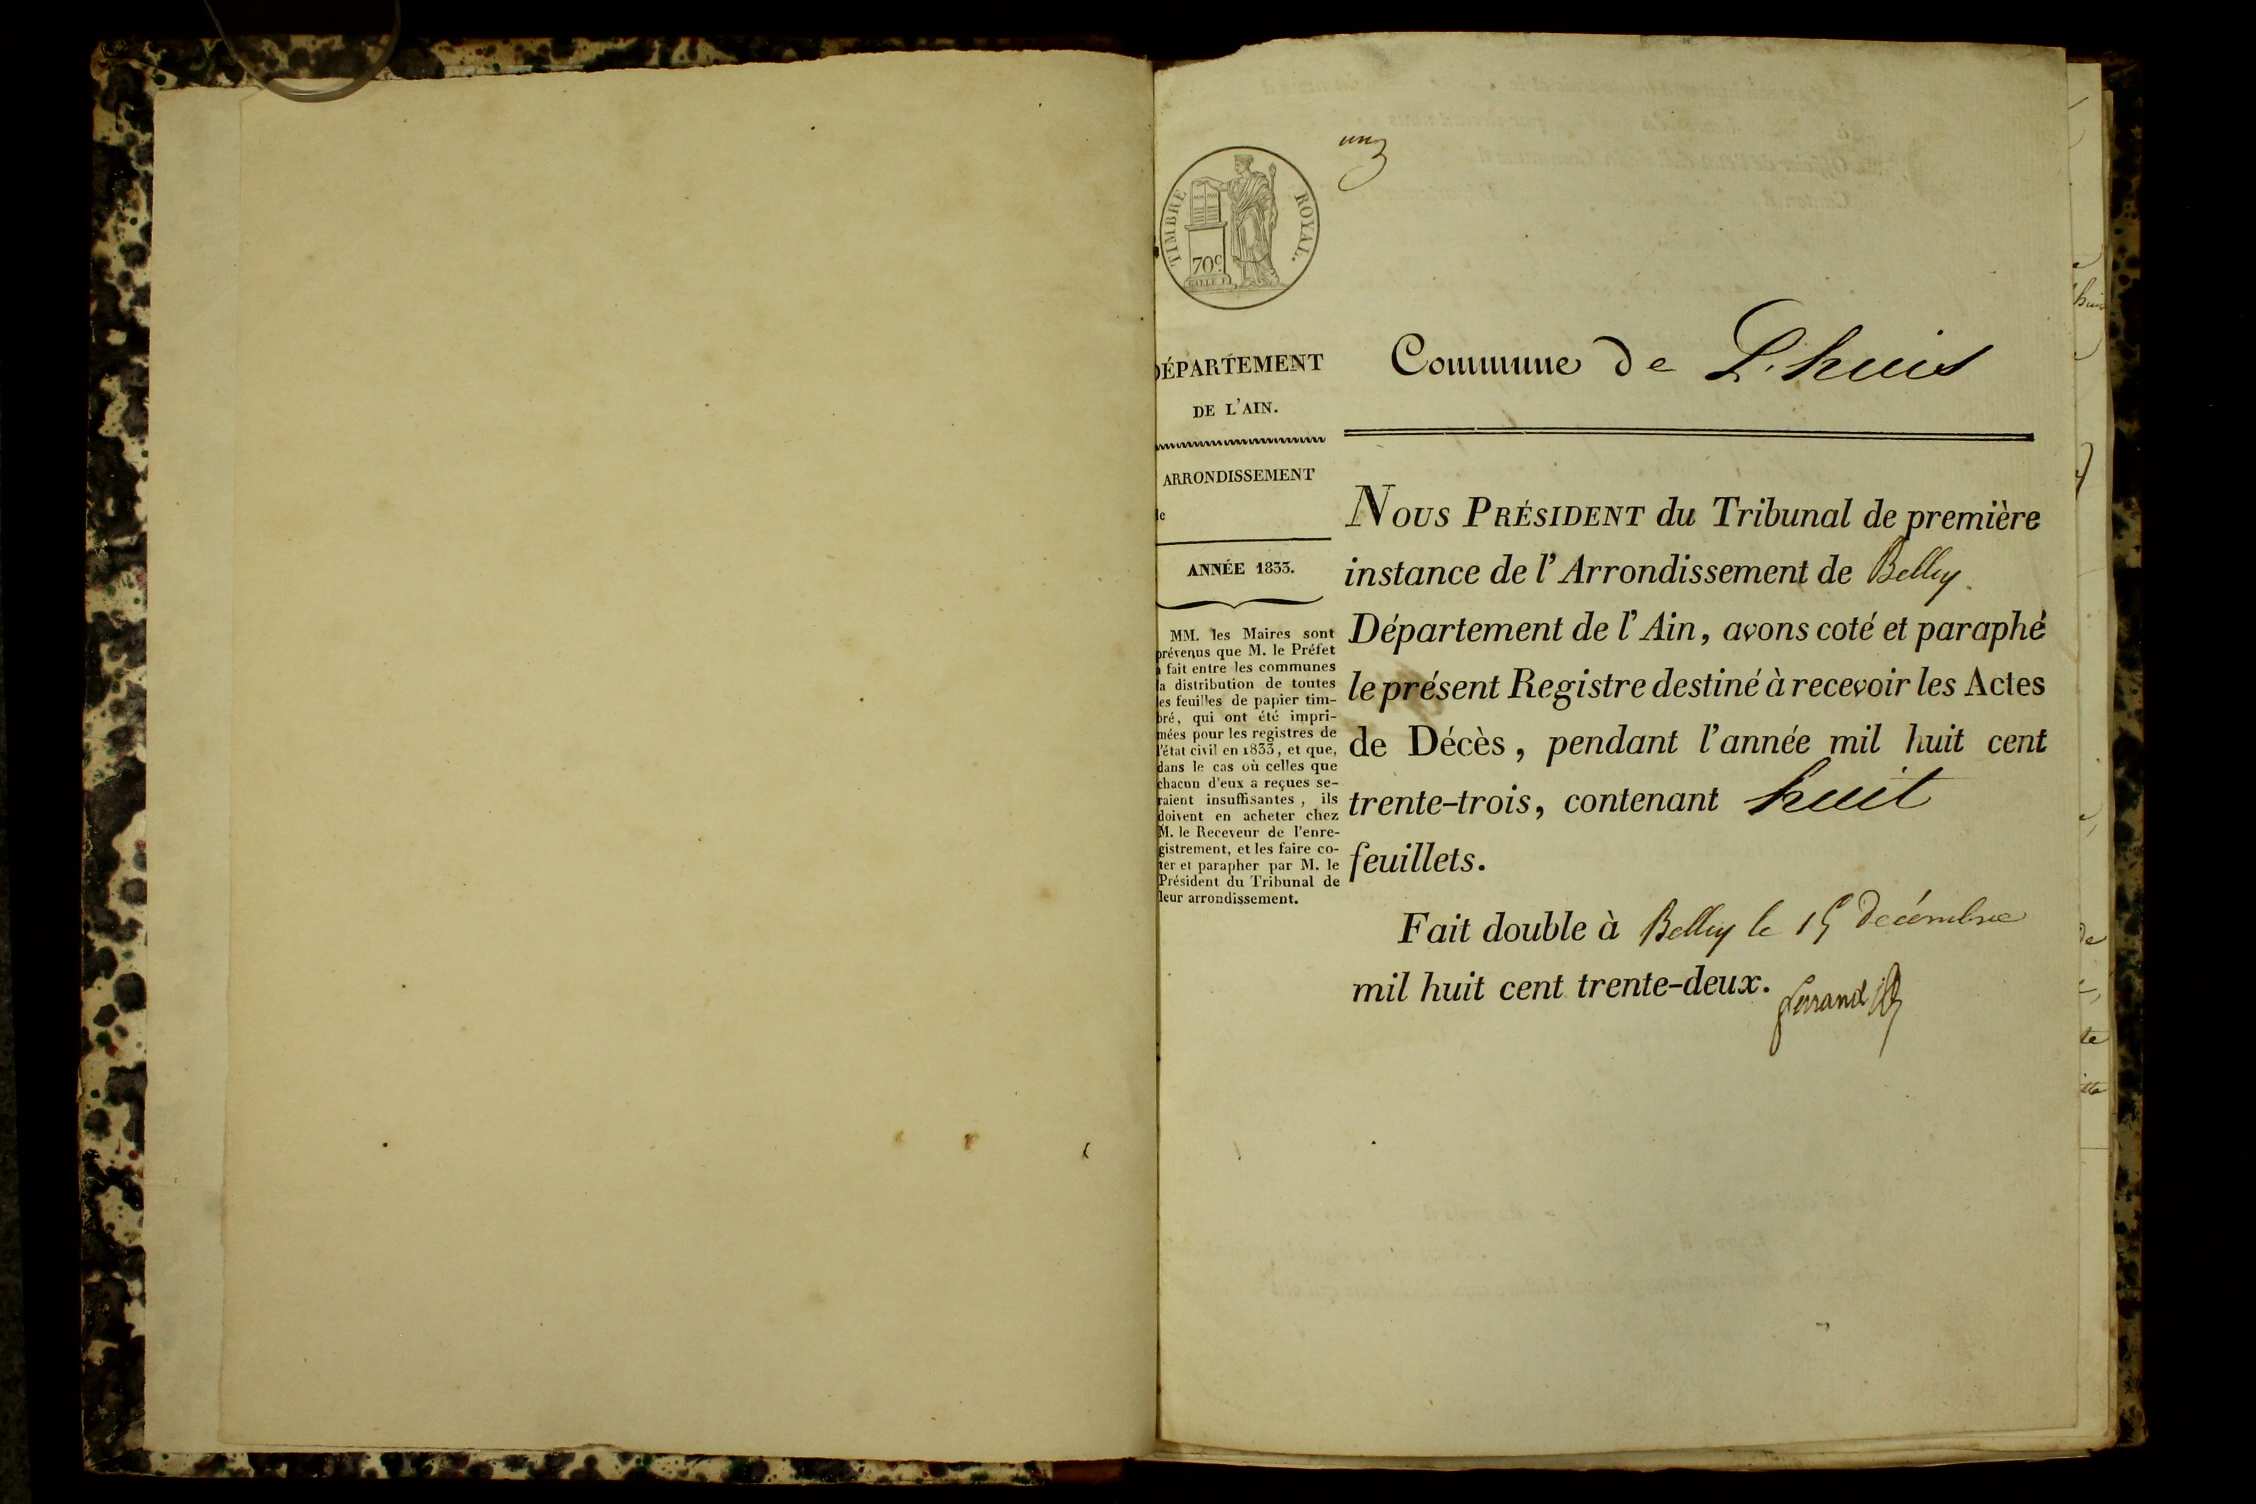 un
TIMBRE ROYAL.
70c
DÉPARTEMENT
DE L'AIN.
ARRONDISSEMENT
de
ANNÉE 1833.
MM. les Maires sont
prévenus que M. le Préfet
a fait entre les communes
la distribution de toutes
les feuilles de papier tim-
bré, qui ont été impri-
mées pour les registres de
l'état civil en 1833, et que,
dans le cas où celles que
chacun d'eux a reçues se-
raient insuffisantes, ils
doivent en acheter chez
M. le Receveur de l'enre-
gistrement, et les faire co-
ter et parapher par M. le
Président du Tribunal de
leur arrondissement.
Commune de L.huis
NOUS PRÉSIDENT du Tribunal de première
instance de l'Arrondissement de Belley
Département de l'Ain, avons coté et paraphé
le présent Registre destiné à recevoir les Actes
de Décès, pendant l'année mil huit cent
trente-trois, contenant huit
feuillets.
Fait double à Belley le 15 Decémbre
mil huit cent trente-deux.
ferrand